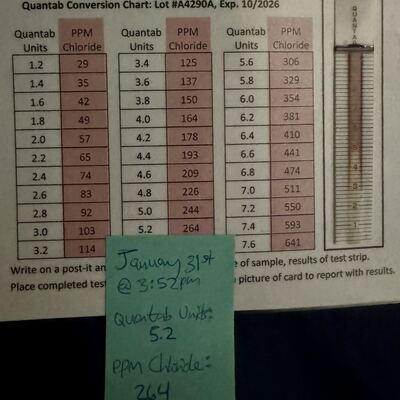 Quantab Conversion Chart: Lot #A4290A, Exp. 10/2026
Quantab Units PPM Chloride Quantab Units PPM Chloride Quantab Units PPM Chloride
1.2 29 3.4 125 5.6 306
1.4 35 3.6 137 5.8 329
1.6 42 3.8 150 6.0 354
1.8 49 4.0 164 6.2 381
2.0 57 4.2 178 6.4 410
2.2 65 4.4 193 6.6 441
2.4 74 4.6 209 6.8 474
2.6 83 4.8 226 7.0 511
2.8 92 5.0 244 7.2 550
3.0 103 5.2 264 7.4 593
3.2 114 7.6 641
QUANTAB
Write on a post-it an e of sample, results of test strip.
Place completed test picture of card to report with results.
January 31st
@ 3:52pm
Quantab Units:
5.2
PPM Chloride:
264